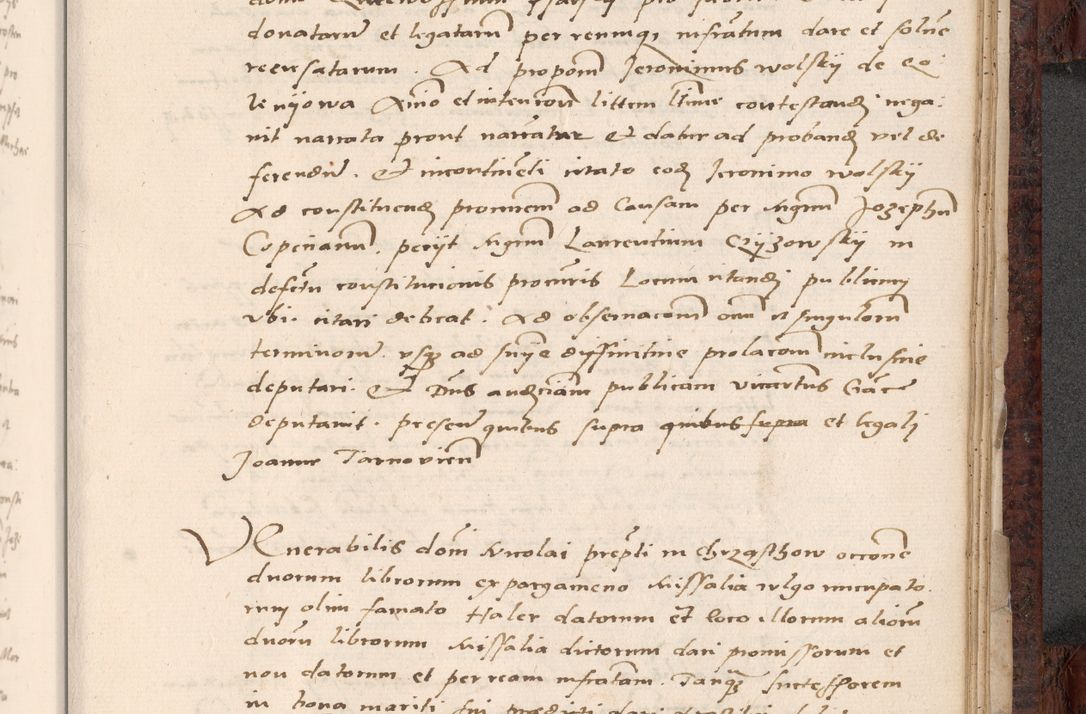 donatarum et legatarum per renumq, infrascriptum dare et solvere
recusatarum. Ad proponendum Jeronimus wolskij de Co
lenijowa animo et intencione littem ltime contestandi nega
vit narrata prout narrantur Et datur ad probandum vel de
ferendum. Et incontinenti citato eodem Jeronimo wolskij
Ad constituendum procuratorem ad Causam per Magistrum Jozephum
Copcinanum. petijt Magistrum Laurentium Czijzowskij in
defectu constitucionis procuratoris Locum citandi publicum
vbi citari debeat. Ad observacionem omnium et singulorum
terminorum. vsque ad sententie diffinitive prolacionem inclusive
deputari. Et Dominus audienciam publicam vicariatus Gracie
deputavit. presentibus quibus supra quibus supra et legali
Joanne Tarnoviensi

Venerabilis domini Nicolai prepositi in Chrzqsthow occasione
duorum librorum ex pargameno Missalia vlgo nuncupato
rum olim famato Haler datorum et loco illorum aliorum
duorum librorum Missalia dictorum dari promissorum et
non datorum et per ream infrascriptam. Tanquam successorem
in bona mariti sui predicti dari